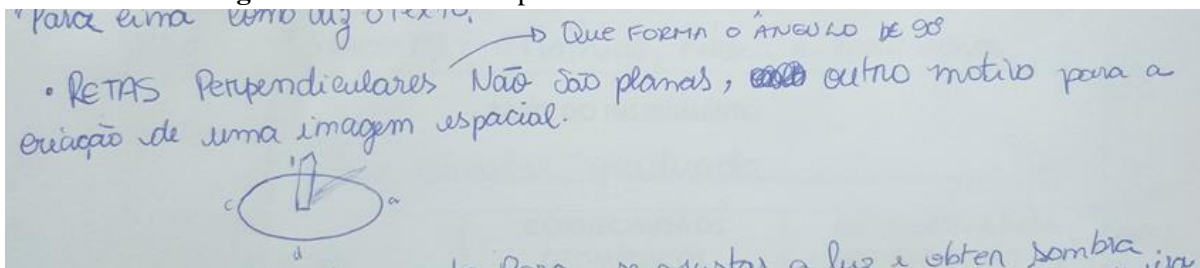 para cima como diz o texto.
→ QUE FORMA O ÂNGULO DE 90º
• RETAS Perpendiculares Não são planas, outro motivo para a
criação de uma imagem espacial.
c a
d
a luz e obter sombra